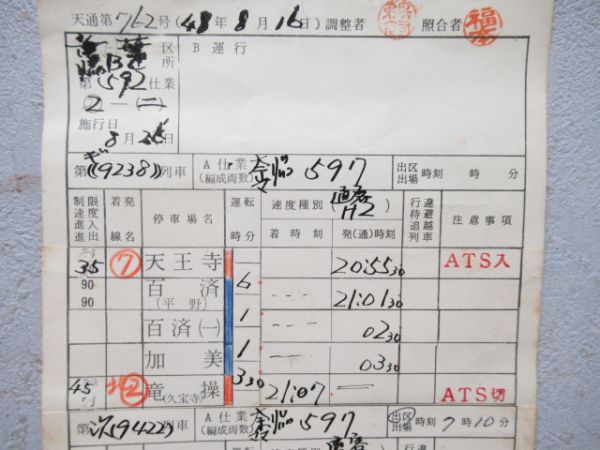 天通第762号(48年8月16日)調整者 照合者 福
区所 B運行
第592仕業
2—二
施行日
8月25日
第(9238)列車 A仕業(編成両数) 597 出区出場時刻 時 分
制限速度進入進出 着発線名 停車場名 運転時分 速度種別(直客H2) 着時刻 発(通)時刻 行違待避追越列車 注意事項
35 ⑦ 天王寺 20:55 30 ATS入
6
90 90 百済(平野) --- 21:01 30
1
百済(一) --- 02 30
1
加美 --- 03 30
3 30
45 北② 竜操(久宝寺) 21:07 — ATS切
第 (9422) 列車 A仕業(編成両数) 597 出区出場時刻 7時10分